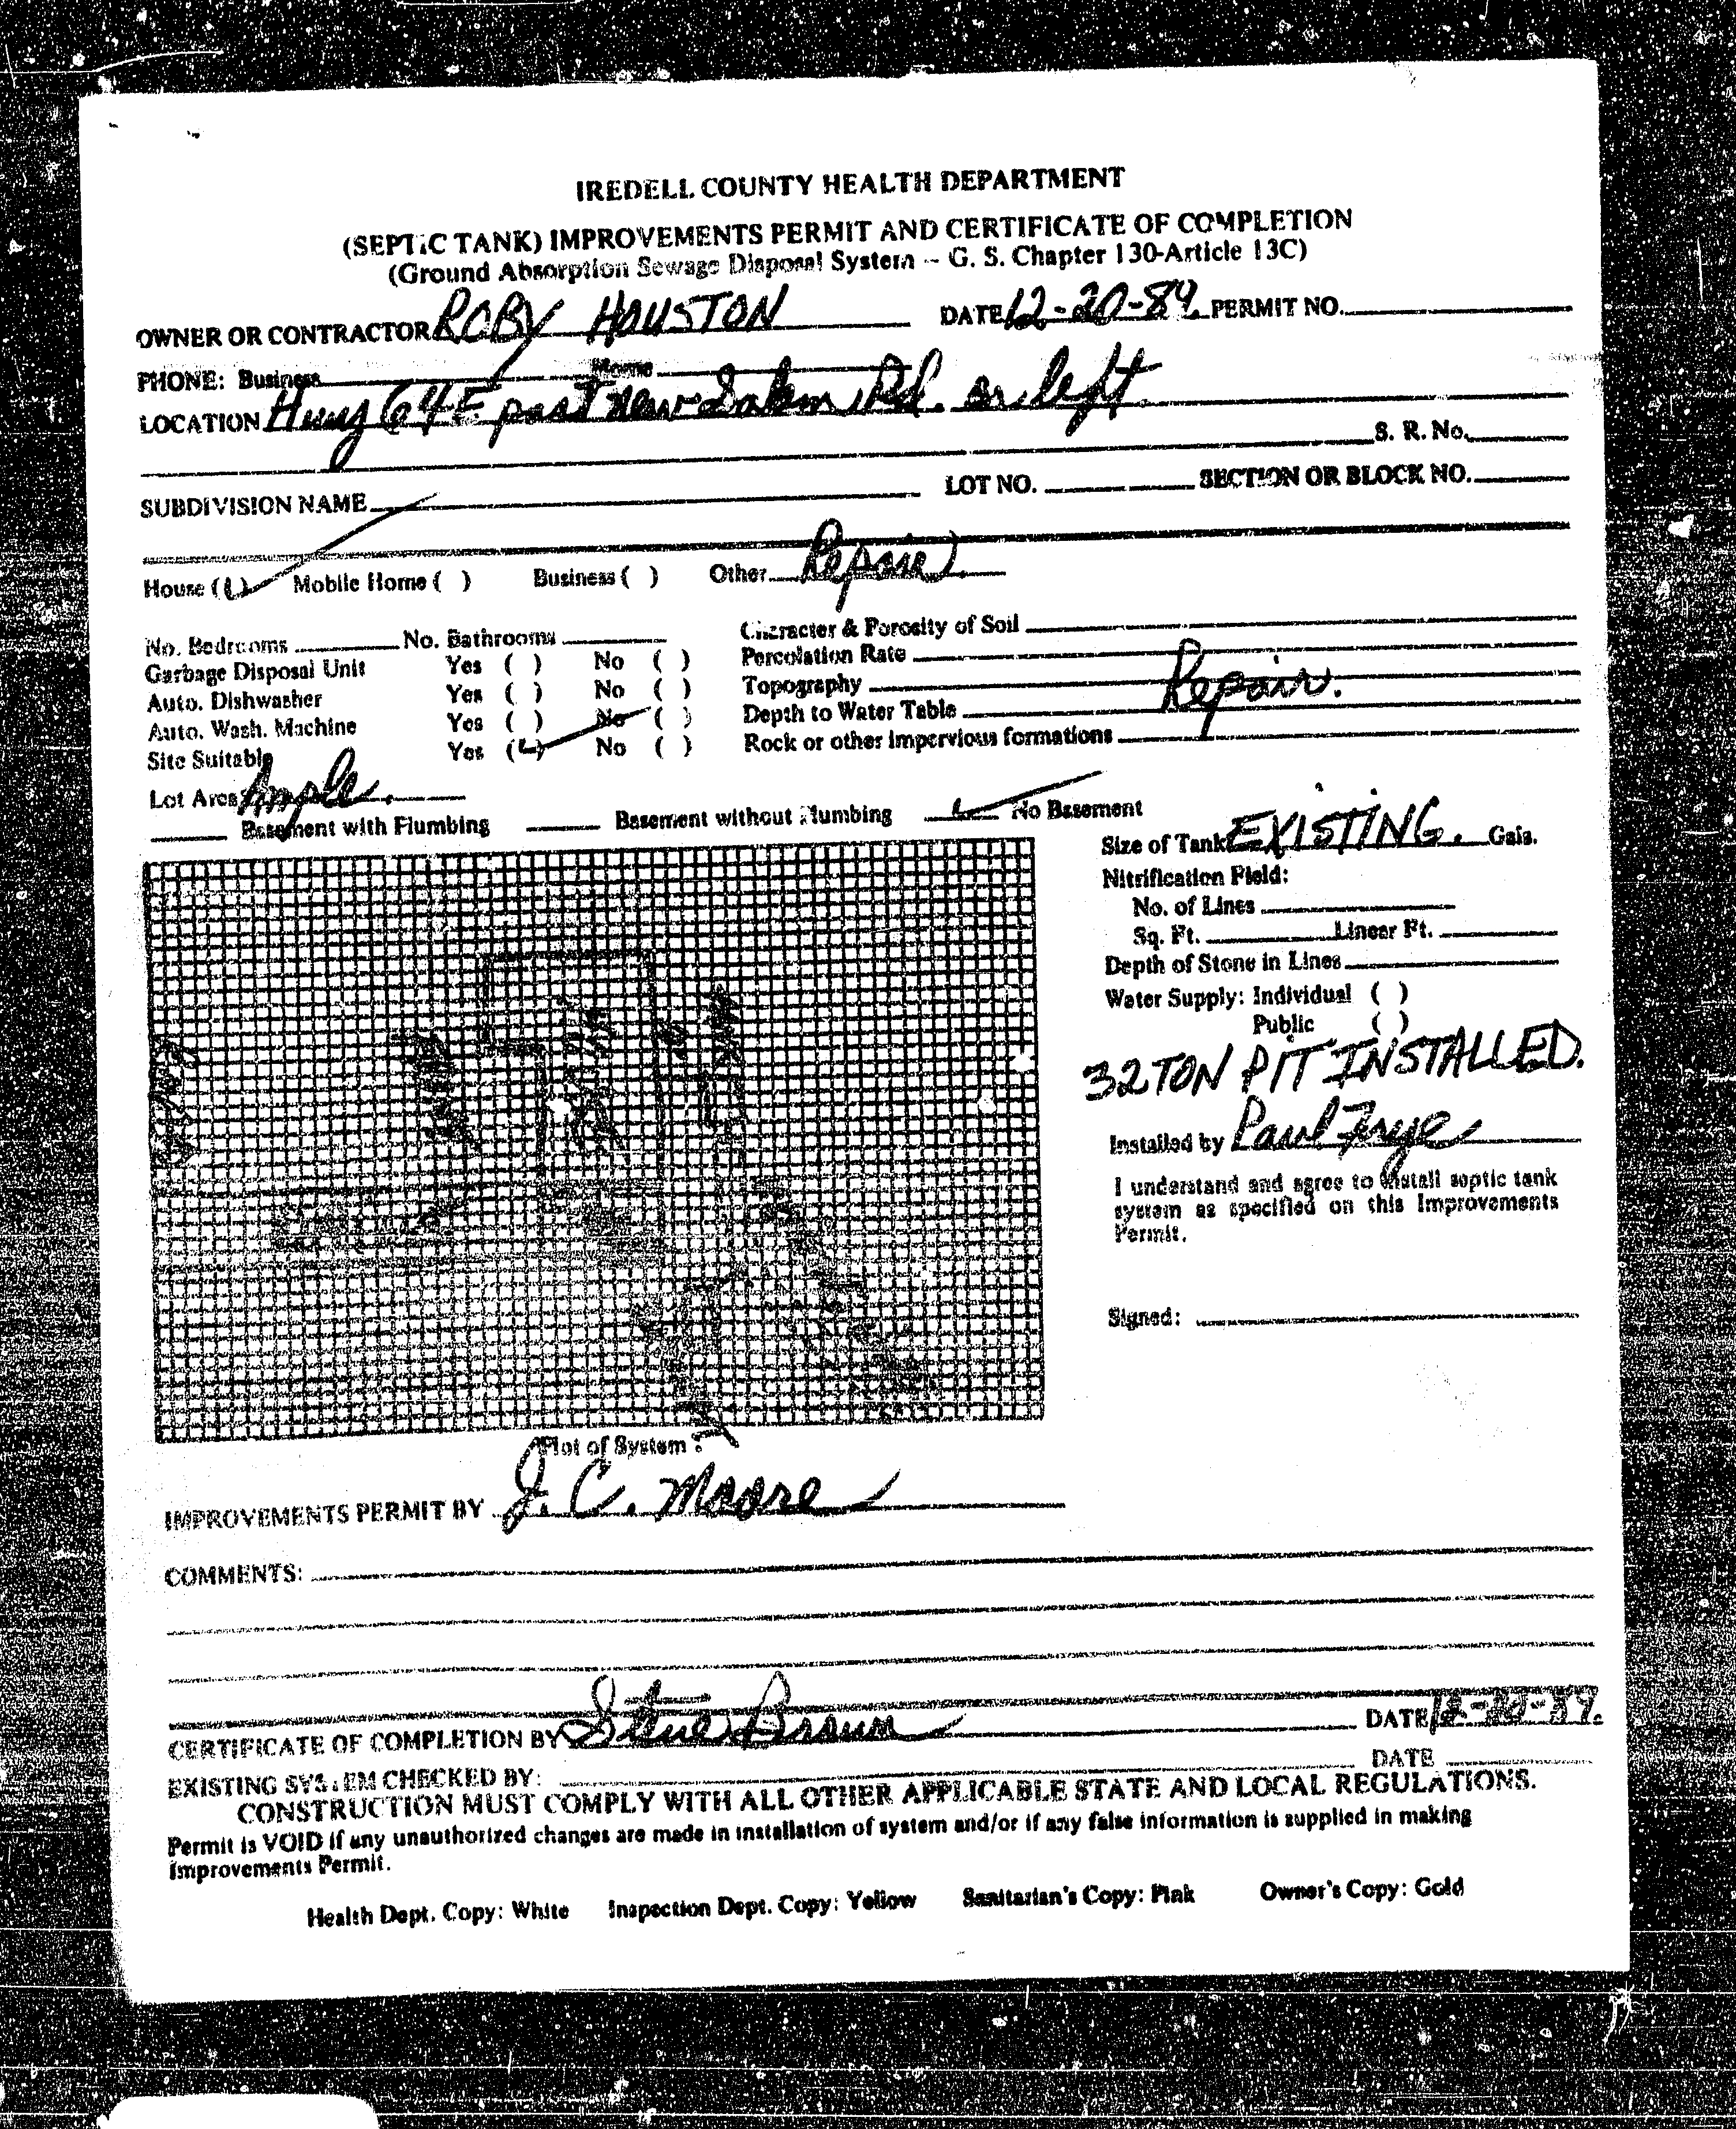 IREDELL COUNTY HEALTH DEPARTMENT
(SEPTIC TANK) IMPROVEMENTS PERMIT AND CERTIFICATE OF COMPLETION
(Ground Absorption Sewage Disposal System -- G. S. Chapter 130-Article 13C)
OWNER OR CONTRACTOR ROBY HOUSTON DATE 12-20-89 PERMIT NO.
PHONE: Business Home
LOCATION Hwy 64 E past new Salem Rd. on left.
S. R. No.
SUBDIVISION NAME LOT NO. SECTION OR BLOCK NO.
House ( ) Mobile Home ( ) Business ( ) Other Repair
No. Bedrooms No. Bathrooms Character & Porosity of Soil
Garbage Disposal Unit Yes ( ) No ( ) Percolation Rate
Auto. Dishwasher Yes ( ) No ( ) Topography Repair.
Auto. Wash. Machine Yes ( ) No ( ) Depth to Water Table
Site Suitable Yes ( ) No ( ) Rock or other impervious formations
Lot Area Ample.
Basement with Plumbing Basement without Plumbing No Basement
Size of Tank EXISTING. Gals.
Nitrification Field:
No. of Lines
Sq. Ft. Linear Ft.
Depth of Stone in Lines
Water Supply: Individual ( )
Public ( )
32 TON PIT INSTALLED.
Installed by Paul Frye
I understand and agree to install septic tank
system as specified on this Improvements
Permit.
Signed:
Plot of System
IMPROVEMENTS PERMIT BY J. C. Moore
COMMENTS:
CERTIFICATE OF COMPLETION BY Steve Brown DATE
EXISTING SYSTEM CHECKED BY: DATE
CONSTRUCTION MUST COMPLY WITH ALL OTHER APPLICABLE STATE AND LOCAL REGULATIONS.
Permit is VOID if any unauthorized changes are made in installation of system and/or if any false information is supplied in making
Improvements Permit.
Health Dept. Copy: White Inspection Dept. Copy: Yellow Sanitarian's Copy: Pink Owner's Copy: Gold